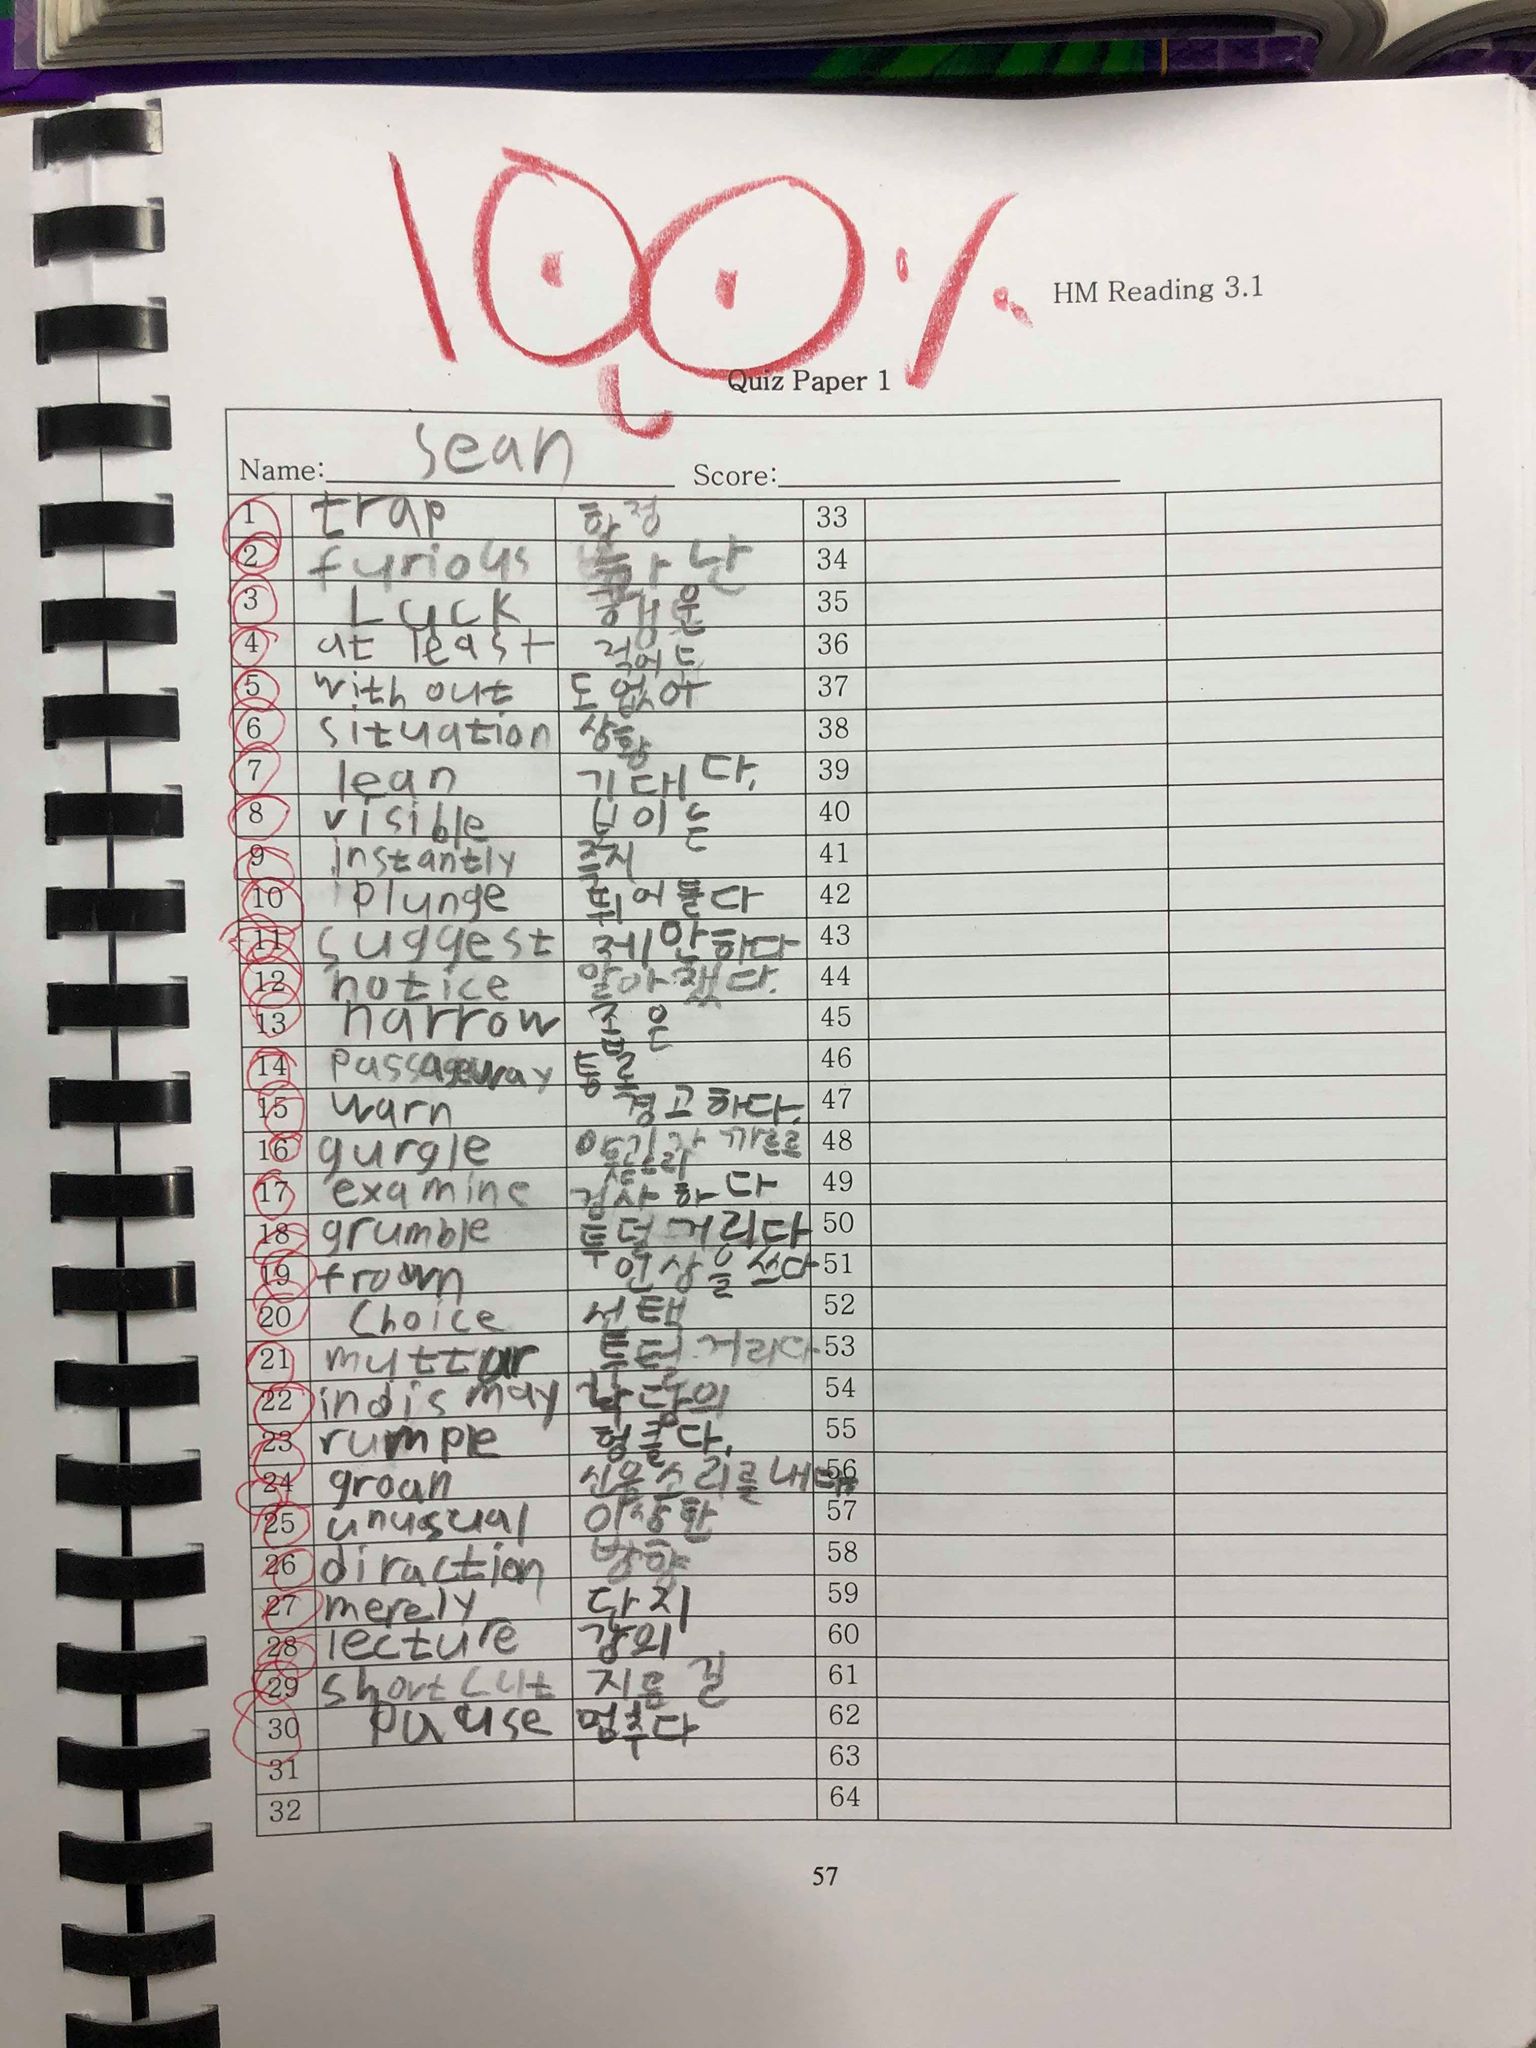 100%
HM Reading 3.1
Quiz Paper 1
Name: sean Score:
1 trap 함정 33
2 furious 화난 34
3 Luck 행운 35
4 at least 적어도 36
5 with out 도 없이 37
6 situation 상황 38
7 lean 기대다. 39
8 visible 보이는 40
9 instantly 즉시 41
10 plunge 뛰어들다 42
11 suggest 제안하다 43
12 notice 알아챘다. 44
13 narrow 좁은 45
14 passageway 통로 46
15 warn 경고하다. 47
16 gurgle 까르르 48
17 examine 검사하다 49
18 grumble 투덜거리다 50
19 frown 인상을 쓰다 51
20 choice 선택 52
21 muttur 투덜거리다 53
22 indismay 54
23 rumple 헝클다. 55
24 groan 신음소리를 내다 56
25 unusual 이상한 57
26 diraction 방향 58
27 merely 단지 59
28 lecture 강의 60
29 short cut 지름길 61
30 pause 멈추다 62
31 63
32 64
57